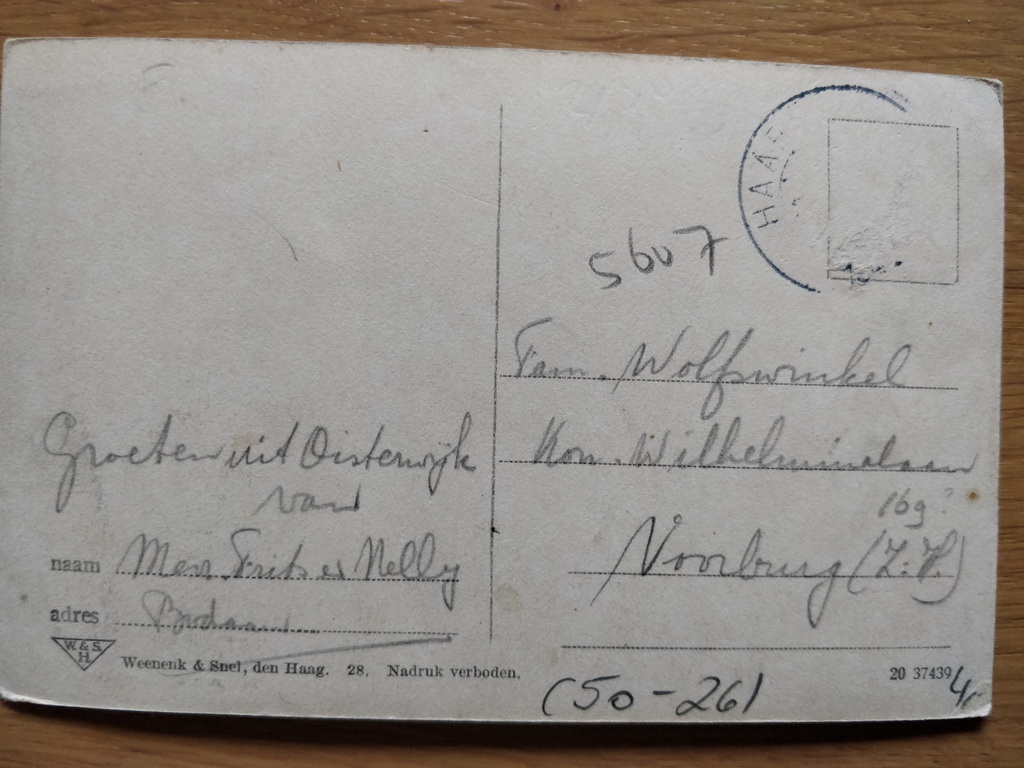 HAA
5607
Fam. Wolfswinkel
Kon. Wilhelminalaan
169?
Voorburg (Z.H.)
Groeten uit Oisterwijk
van
naam Mon. Frits en Nelly
adres Bodaan
W.&S.
H.
Weenenk & Snel, den Haag. 28. Nadruk verboden.
20 37439
(50-26)